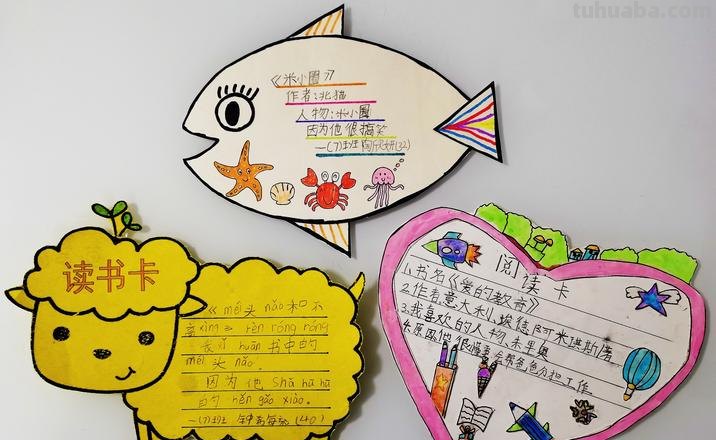 tuhuaba.com
《米小圈》
作者:北猫
人物:米小圈
因为他很搞笑
一(7)班 陶欣妍(32)
读书卡
《méi头 nǎo和不
高xìng》 rèn róng róng
我xǐ huān书中的
méi头 nǎo。
因为他 Shǎ hū hū
的 hěn gǎo xiào。
一(7)班 (40)
阅读卡
1.书名《爱的教育》
2.作者意大利.埃德阿米琪斯著
3.我喜欢的人物.朱里奥
4.原因他很懂事会帮爸爸分担工作